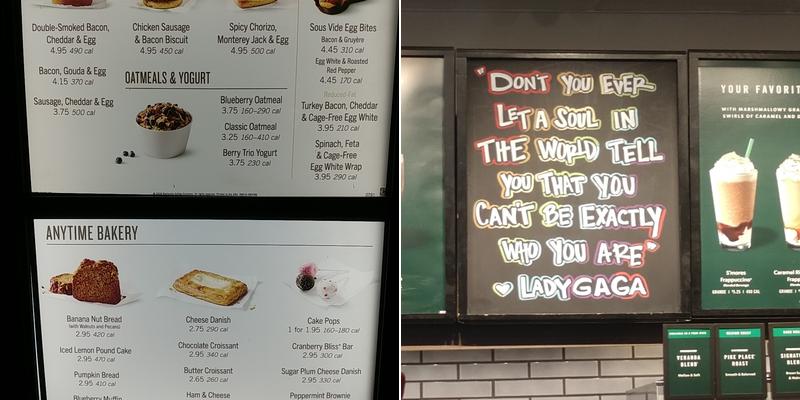 Double-Smoked Bacon,
Cheddar & Egg
4.95 490 cal
Bacon, Gouda & Egg
4.15 370 cal
Sausage, Cheddar & Egg
3.75 500 cal
Chicken Sausage
& Bacon Biscuit
4.95 450 cal
Spicy Chorizo,
Monterey Jack & Egg
4.95 500 cal
OATMEALS & YOGURT
Blueberry Oatmeal
3.75 160–290 cal
Classic Oatmeal
3.25 160–410 cal
Berry Trio Yogurt
3.75 230 cal
Sous Vide Egg Bites
Bacon & Gruyère
4.45 310 cal
Egg White & Roasted
Red Pepper
4.45 170 cal
Reduced-Fat
Turkey Bacon, Cheddar
& Cage-Free Egg White
3.95 210 cal
Spinach, Feta
& Cage-Free
Egg White Wrap
3.95 290 cal
ANYTIME BAKERY
Banana Nut Bread
(with Walnuts and Pecans)
2.95 420 cal
Iced Lemon Pound Cake
2.95 470 cal
Pumpkin Bread
2.95 410 cal
Blueberry Muffin
Cheese Danish
2.75 290 cal
Chocolate Croissant
2.95 340 cal
Butter Croissant
2.65 260 cal
Ham & Cheese
Cake Pops
1 for 1.95 160–180 cal
Cranberry Bliss® Bar
2.95 300 cal
Sugar Plum Cheese Danish
2.95 330 cal
Peppermint Brownie
"DON'T YOU EVER
LET A SOUL IN
THE WORLD TELL
YOU THAT YOU
CAN'T BE EXACTLY
WHO YOU ARE"
♡ LADY GAGA
YOUR FAVORIT
WITH MARSHMALLOWY GRA
SWIRLS OF CARAMEL AND
S'mores
Frappuccino®
Caramel
VERANDA
BLEND®
PIKE PLACE®
ROAST
SIGNATURE
BLEND